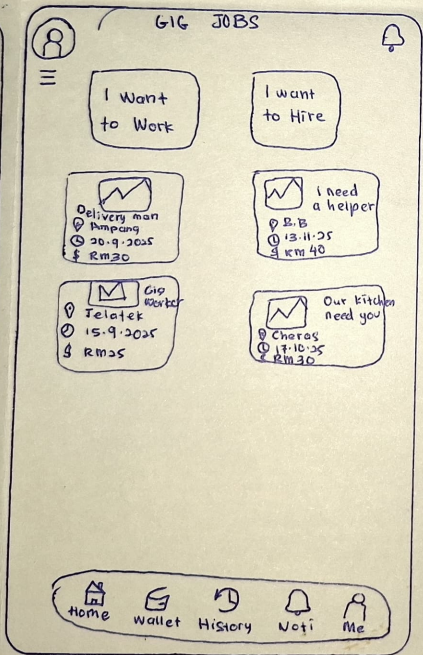 GIG JOBS
I Want
to Work
I want
to Hire
Delivery man
Ampang
20.9.2025
$ RM30
i need
a helper
B.B
13.11.25
$ RM 40
Gig
Worker
Jelatek
15.9.2025
$ RM25
Our kitchen
need you
Cheras
17.10.25
$ RM 30
Home
Wallet
History
Noti
Me